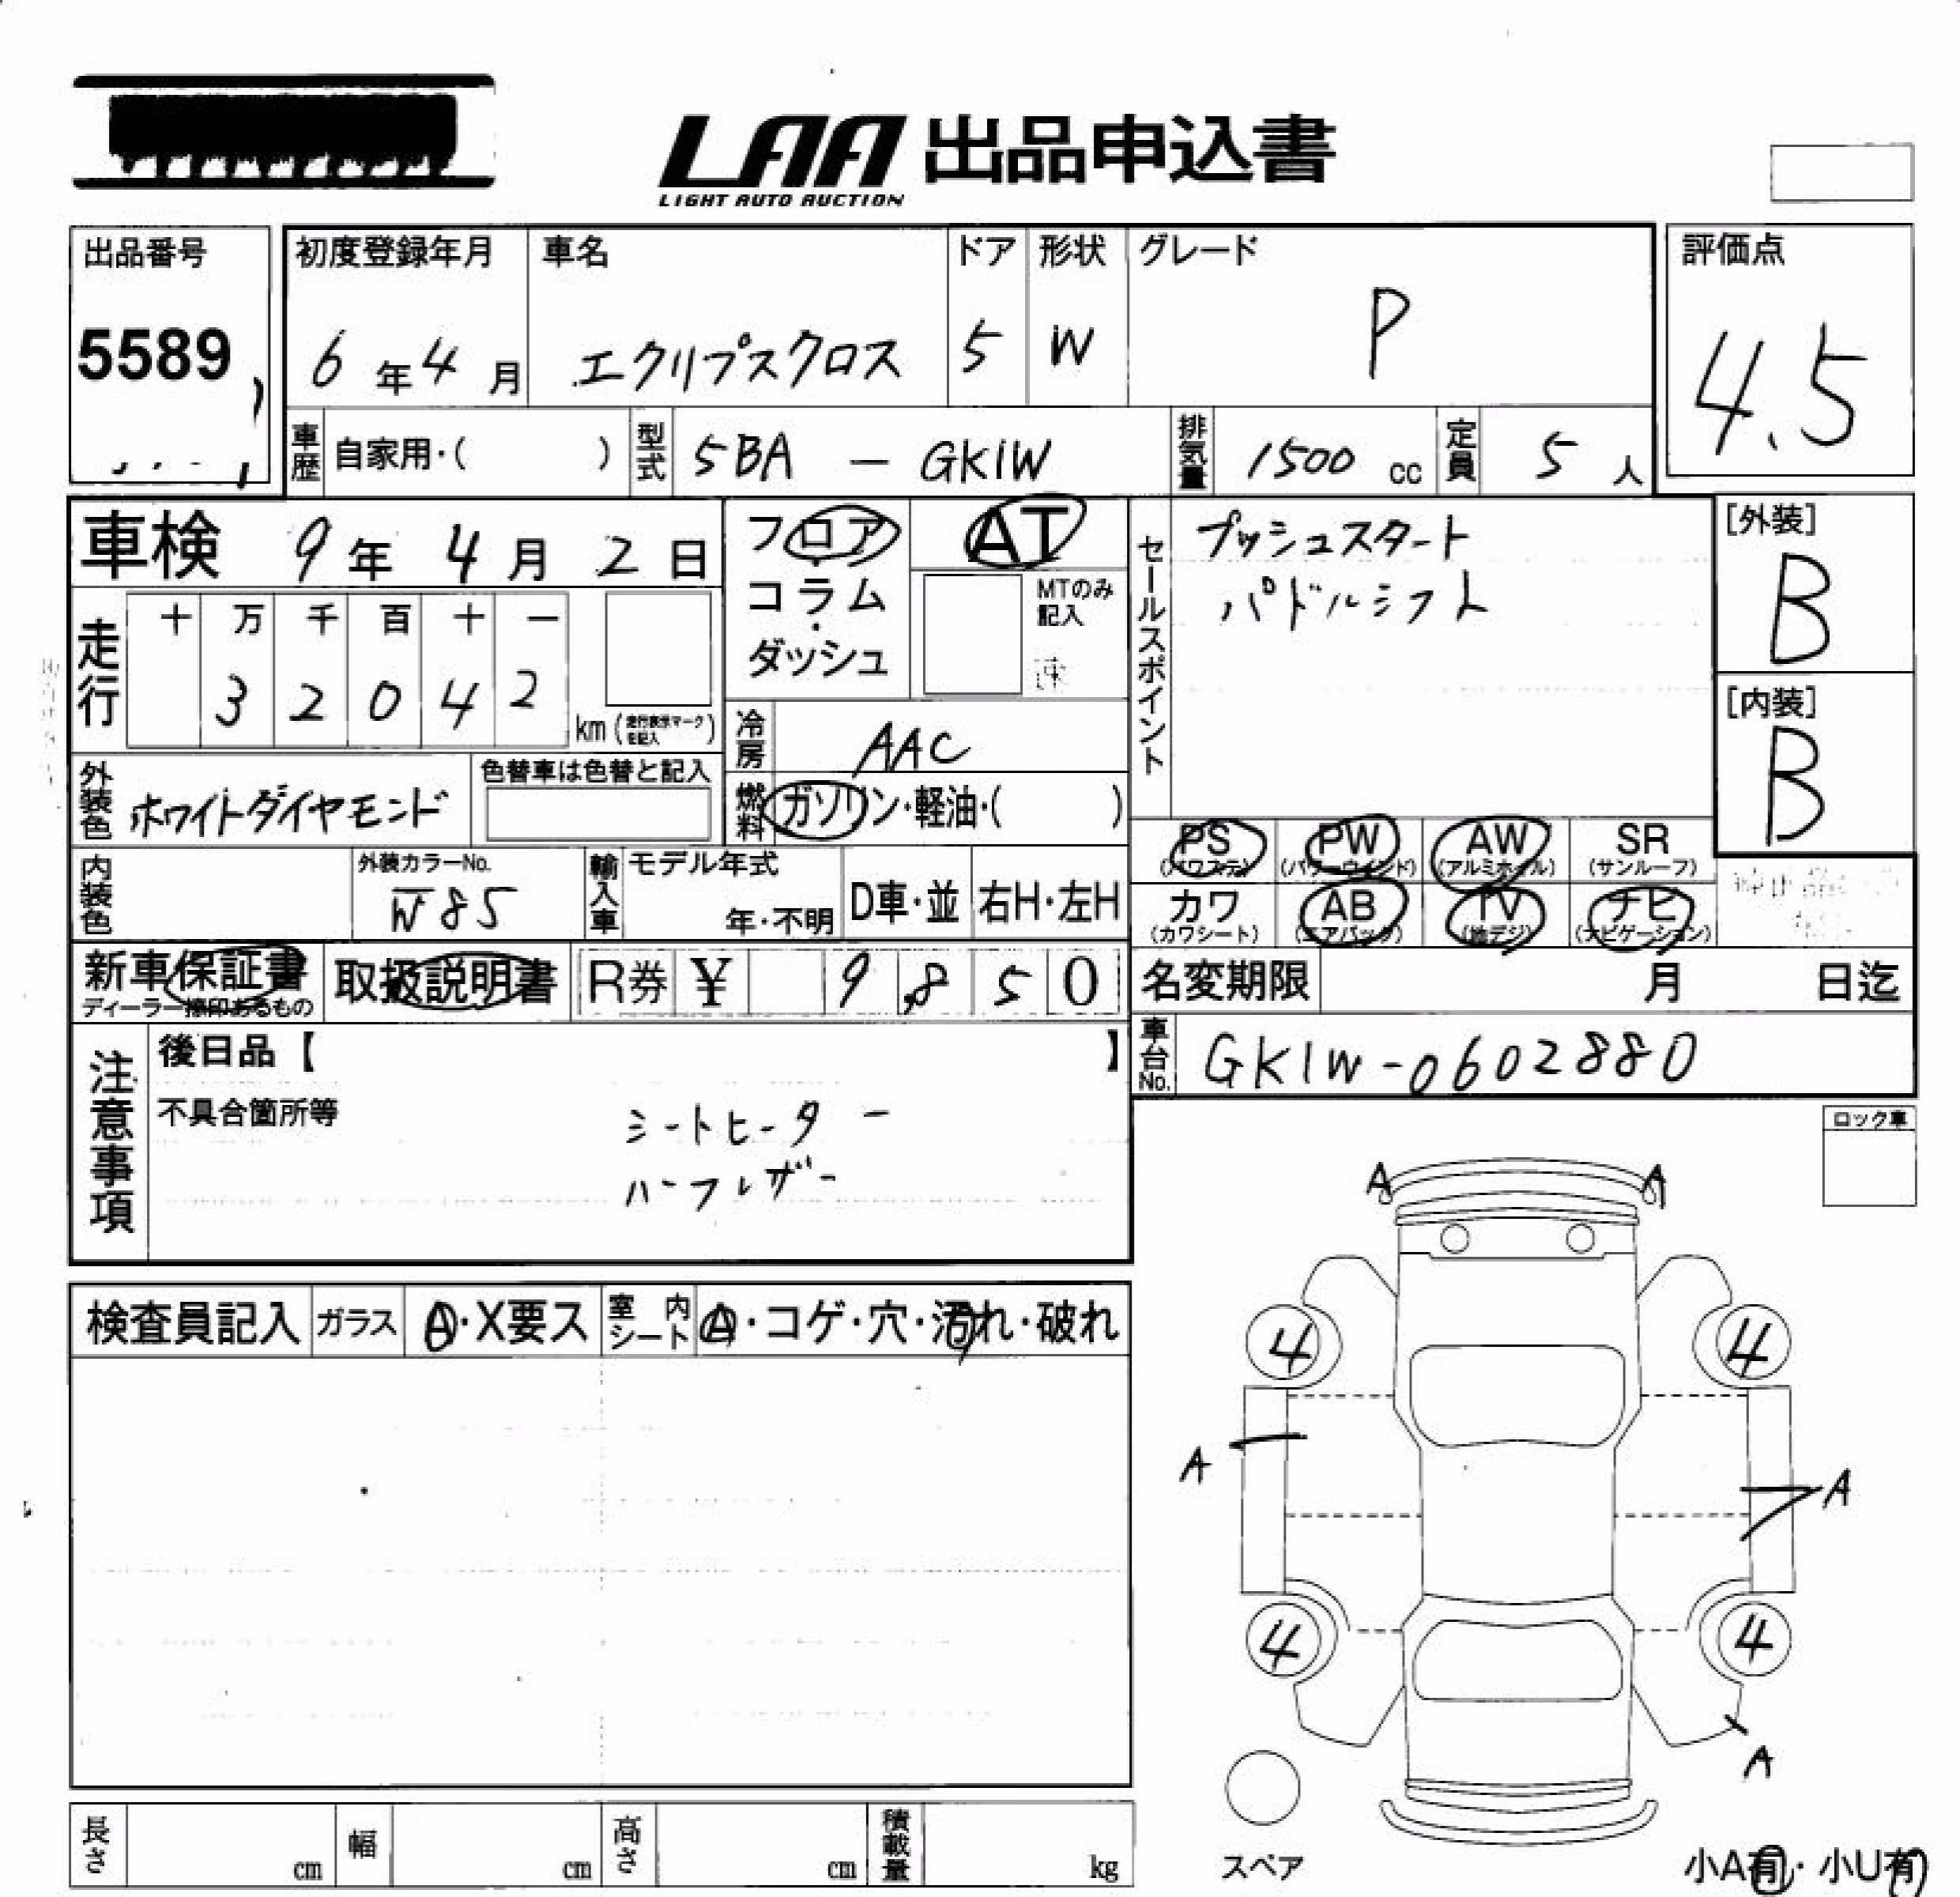 LAA 出品申込書
LIGHT AUTO AUCTION
出品番号
5589
初度登録年月
6年4月
車名
エクリプスクロス
ドア
5
形状
W
グレード
P
評価点
4.5
車歴 自家用・( )
型式 5BA - GK1W
排気量 1500 cc
定員 5 人
車検 9年 4月 2日
走行
十 万 千 百 十 一
3 2 0 4 2
km (走行表示マークを記入)
フロア・コラム・ダッシュ
AT
MTのみ記入
速
冷房 AAC
燃料 ガソリン・軽油・( )
セールスポイント
プッシュスタート
パドルシフト
[外装]
B
[内装]
B
外装色 ホワイトダイヤモンド
色替車は色替と記入
内装色
外装カラーNo.
W85
輸入車
モデル年式
年・不明
D車・並
右H・左H
PS (パワステ)
PW (パワーウインド)
AW (アルミホイル)
SR (サンルーフ)
カワ (カワシート)
AB (エアバック)
TV (地デジ)
ナビ (ナビゲーション)
新車保証書
ディーラー捺印あるもの
取扱説明書
R券 ¥ 9,850
名変期限 月 日迄
車台No. GK1W-0602880
注意事項
後日品【 】
不具合箇所等
シートヒーター
ハーフレザー
ロック車
検査員記入
ガラス A・X要ス
室内シート A・コゲ・穴・汚れ・破れ
A A
4 4
A A
4 4
A
スペア
小A有・小U有
長さ cm
幅 cm
高さ cm
積載量 kg